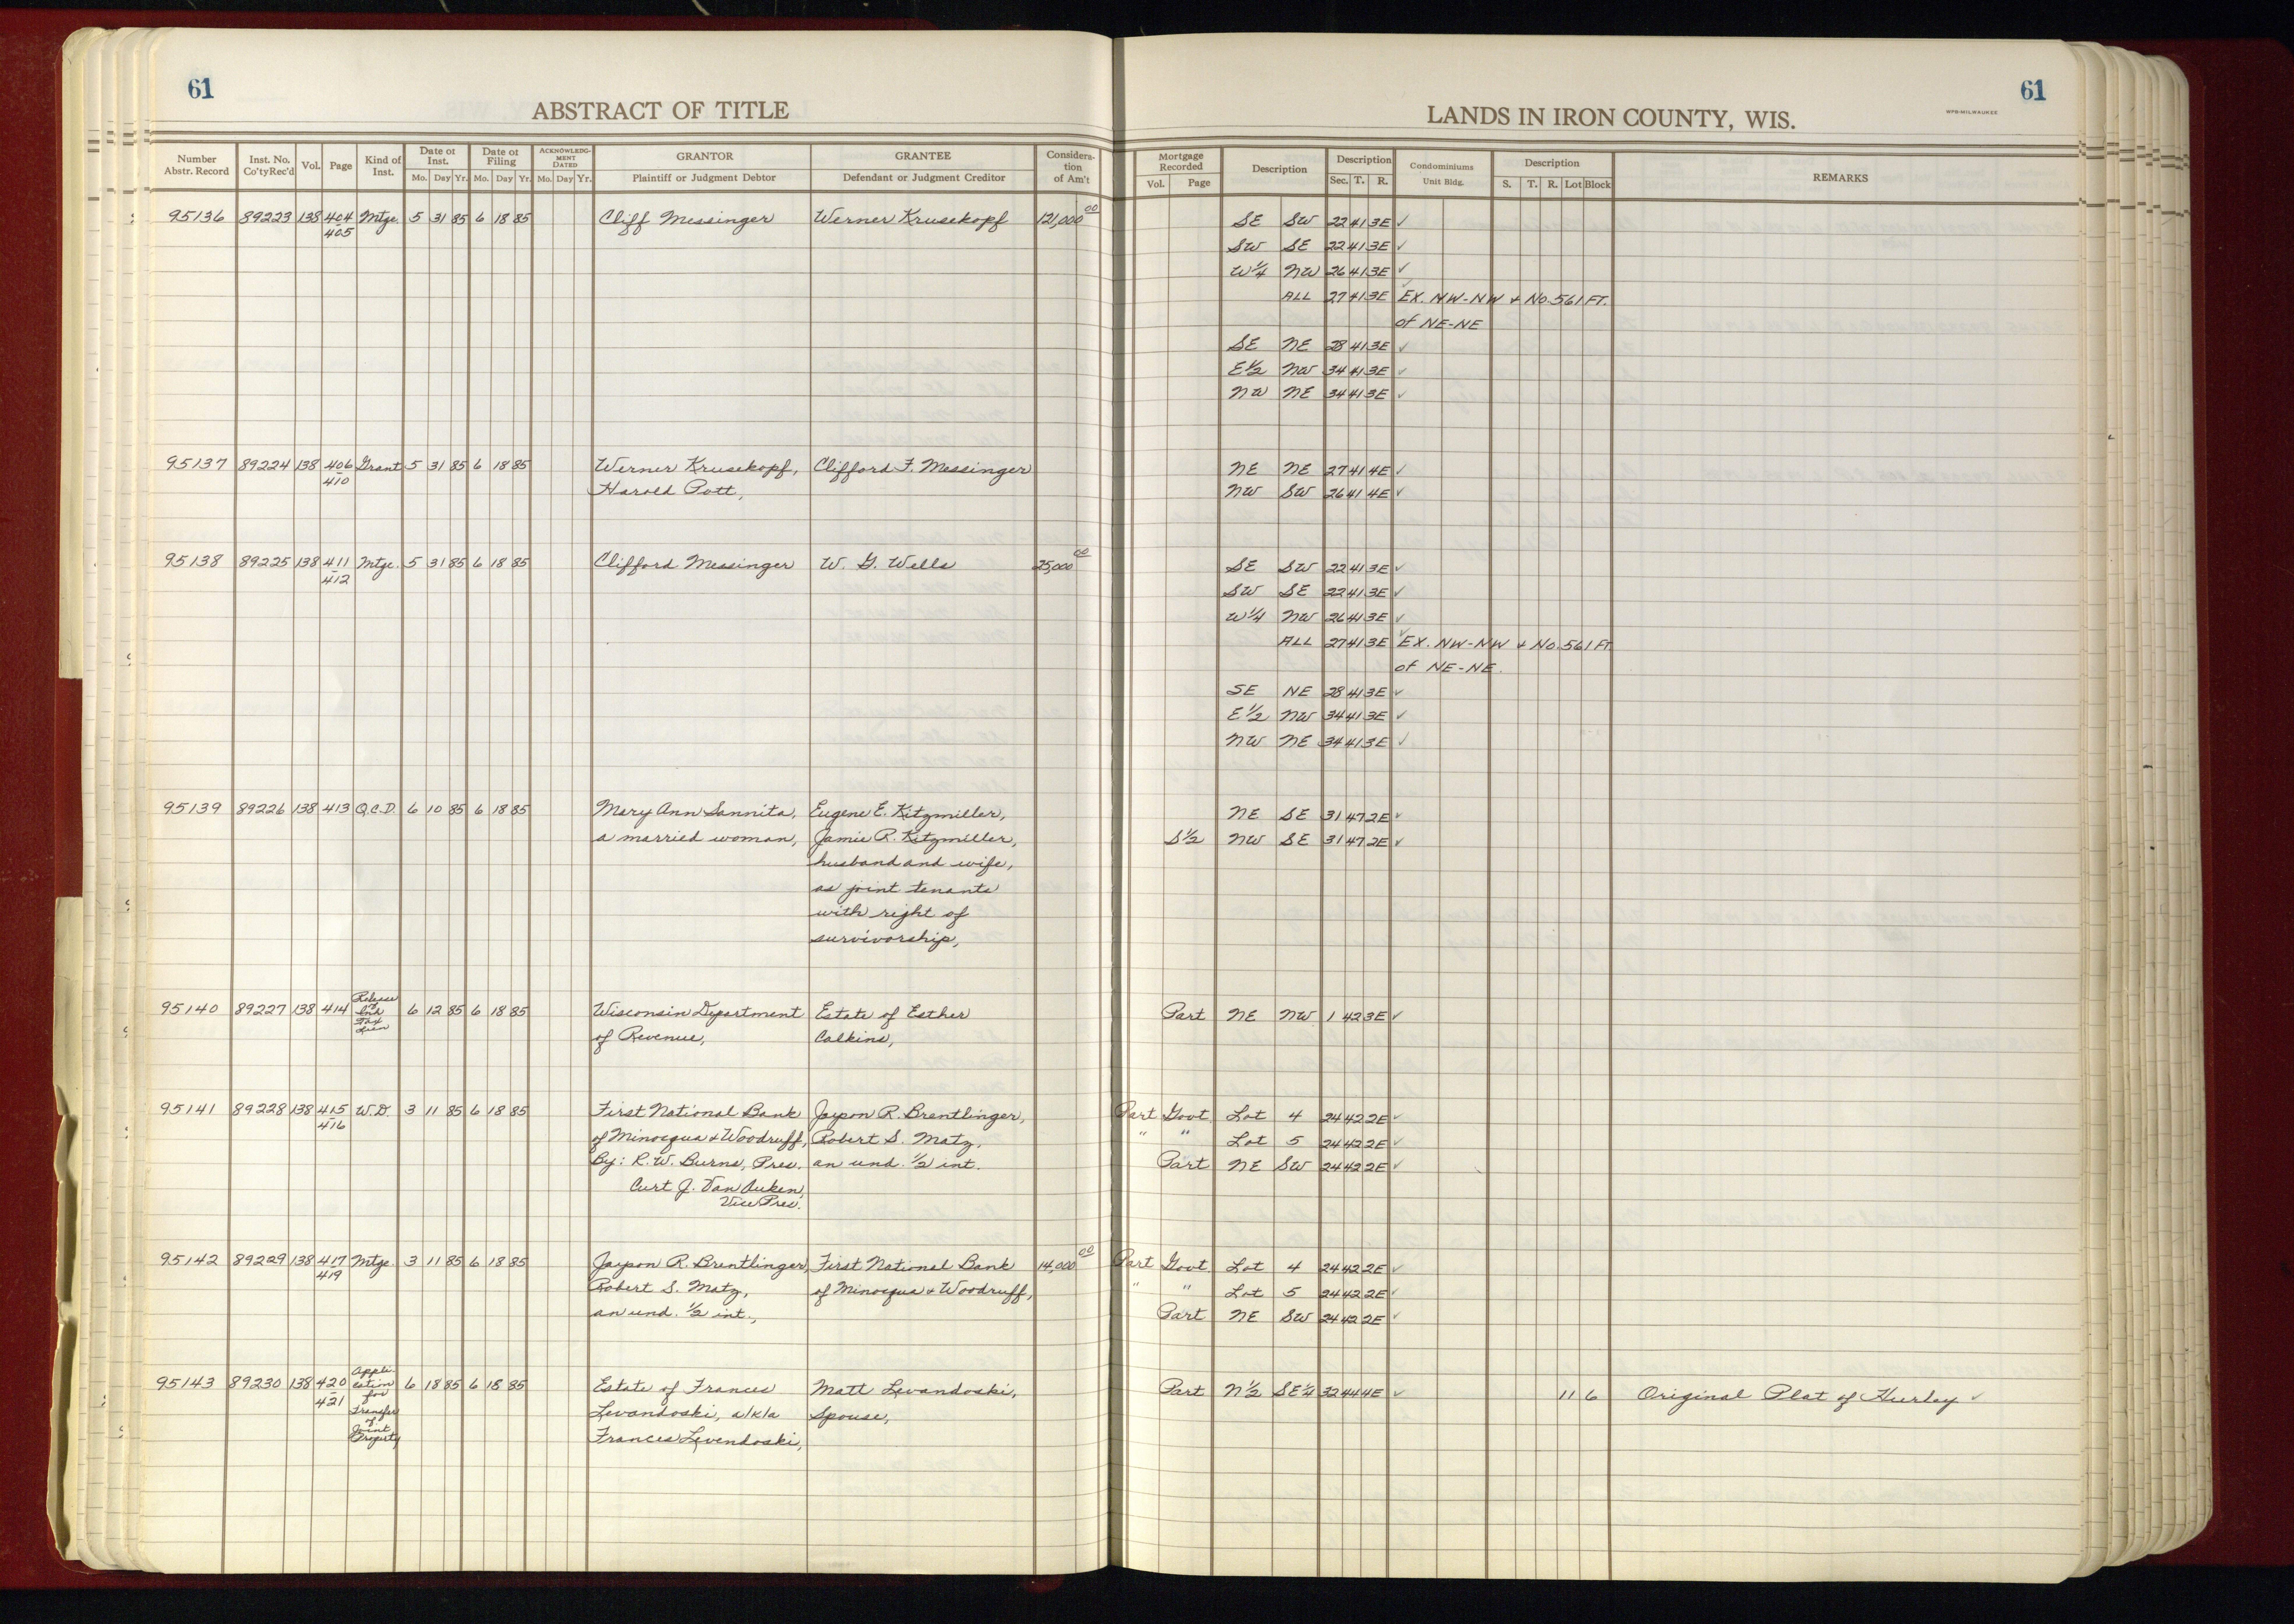 61
ABSTRACT OF TITLE
Number Abstr. Record Inst. No. Co'ty Rec'd Vol. Page Kind of Inst. Date of Inst. Mo. Day Yr. Date of Filing Mo. Day Yr. ACKNOWLEDGMENT DATED Mo. Day Yr. GRANTOR Plaintiff or Judgment Debtor GRANTEE Defendant or Judgment Creditor Consideration of Am't
61
LANDS IN IRON COUNTY, WIS.
WPB-MILWAUKEE
Mortgage Recorded Vol. Page Description Description Sec. T. R. Condominiums Unit Bldg. Description S. T. R. Lot Block REMARKS
95136 89223 138 404 Mtge. 5 31 85 6 18 85 Cliff Messinger Werner Krusekopf 121,000 00 SE SW 22 41 3E ✓
405 SW SE 22 41 3E ✓
W¼ NW 26 41 3E ✓
ALL 27 41 3E EX. NW-NW + No. 561 FT.
of NE-NE
SE NE 28 41 3E ✓
E½ NW 34 41 3E ✓
NW NE 34 41 3E ✓
95137 89224 138 406 Grant 5 31 85 6 18 85 Werner Krusekopf, Clifford F. Messinger NE NE 27 41 4E ✓
410 Harold Pott, NW SW 26 41 4E ✓
95138 89225 138 411 Mtge. 5 31 85 6 18 85 Clifford Messinger W. G. Wells 25,000 00 SE SW 22 41 3E ✓
412 SW SE 22 41 3E ✓
W¼ NW 26 41 3E ✓
ALL 27 41 3E EX. NW-NW + No. 561 FT
of NE-NE.
SE NE 28 41 3E ✓
E½ NW 34 41 3E ✓
NW NE 34 41 3E ✓
95139 89226 138 413 Q.C.D. 6 10 85 6 18 85 Mary Ann Sannita, Eugene E. Kitzmiller, NE SE 31 47 2E ✓
a married woman, Jamie R. Kitzmiller, S½ NW SE 31 47 2E ✓
husband and wife,
as joint tenants
with right of
survivorship,
95140 89227 138 414 Release of Tax Lien 6 12 85 6 18 85 Wisconsin Department Estate of Esther Part NE NW 1 42 3E ✓
of Revenue, Calkins,
95141 89228 138 415 W.D. 3 11 85 6 18 85 First National Bank Jaypon R. Brentlinger, Part Govt. Lot 4 24 42 2E ✓
416 of Minocqua + Woodruff, Robert S. Matz, " " Lot 5 24 42 2E ✓
By: R. W. Burns, Pres. an und. ½ int. Part NE SW 24 42 2E ✓
Curt J. Van Auken,
Vice Pres.
95142 89229 138 417 Mtge. 3 11 85 6 18 85 Jaypon R. Brentlinger, First National Bank 14,000 00 Part Govt. Lot 4 24 42 2E ✓
419 Robert S. Matz, of Minocqua + Woodruff, " " Lot 5 24 42 2E ✓
an und. ½ int., Part NE SW 24 42 2E ✓
95143 89230 138 420 Application for Transfer of Joint Property 6 18 85 6 18 85 Estate of Frances Matt Levandoski, Part N½ SE¼ 32 44 4E ✓ 11 6 Original Plat of Hurley ✓
421 Levandoski, a/k/a Spouse,
Frances Levendoski,